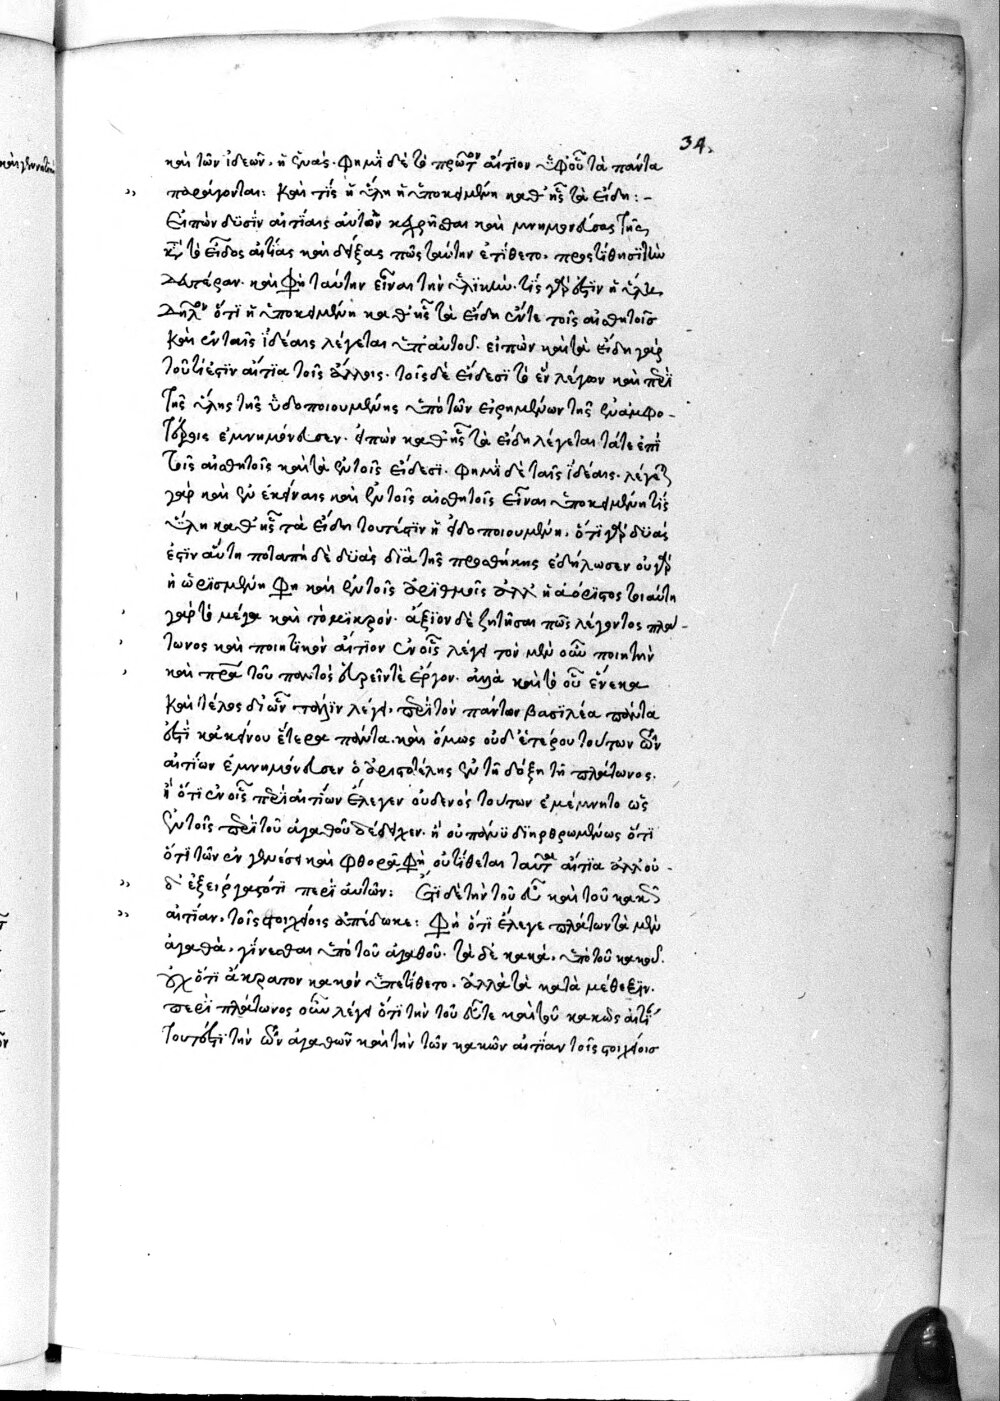 34.
καὶ τῶν ἰδεῶν, ἡ δυάς. φημὶ δὲ τὸ πρῶτον αἴτιον ὑφ' οὗ τὰ πάντα
παράγονται: Καὶ τίς ἡ ὕλη ἡ ὑποκειμένη καθ' ἧς τὰ εἴδη:-
Εἰπὼν δυσὶν αἰτίαις αὐτὸν κεχρῆσθαι καὶ μνημονεύσας τῆς
κατὰ τὸ εἶδος αἰτίας καὶ δείξας πῶς ταύτην ἐτίθετο, προστίθησι τὴν
δευτέραν. καὶ φησὶ ταύτην εἶναι τὴν ὑλικήν. τίς γάρ ἐστιν ἡ ὕλη,
δῆλον ὅτι ἡ ὑποκειμένη καθ' ἧς τὰ εἴδη ἔν τε τοῖς αἰσθητοῖς
καὶ ἐν ταῖς ἰδέαις λέγεται ὑπ' αὐτοῦ. εἰπὼν καὶ τὰ εἴδη γὰρ
τοῦ τί ἐστιν αἴτια τοῖς ἄλλοις. τοῖς δὲ εἴδεσι τὸ ἓν λέγων καὶ περὶ
τῆς ὕλης τῆς εἰδοποιουμένης ὑπὸ τῶν εἰρημένων τῆς ἐν ἀμφο-
τέροις ἐμνημόνευσεν. εἰπὼν καθ' ἧς τὰ εἴδη λέγεται τά τε ἐπὶ
τοῖς αἰσθητοῖς καὶ τὰ ἐν τοῖς εἴδεσι. φημὶ δὲ ταῖς ἰδέαις. λέγει
γὰρ καὶ ἐν ἐκείναις καὶ ἐν τοῖς αἰσθητοῖς εἶναι ὑποκειμένη τίς
ὕλη καθ' ἧς τὰ εἴδη τουτέστιν ἡ εἰδοποιουμένη. ὅτι γὰρ δυάς
ἐστιν αὕτη ποταπὴ δὲ δυὰς διὰ τῆς προσθήκης ἐδήλωσεν οὐ γὰρ
ἡ ὡρισμένη φησὶ καὶ ἐν τοῖς ἀριθμοῖς ἀλλ' ἡ ἀόριστος τοιαύτη
γὰρ τὸ μέγα καὶ τὸ μικρόν. ἄξιον δὲ ζητῆσαι πῶς λέγοντος πλά-
τωνος καὶ ποιητικὸν αἴτιον ἐν οἷς λέγει τὸν μὲν οὖν ποιητὴν
καὶ πατέρα τοῦ παντὸς εὑρεῖν τὲ ἔργον. ἀλλὰ καὶ τὸ οὗ ἕνεκα
καὶ τέλος δι' ὧν πάλιν λέγει. περὶ τὸν πάντων βασιλέα πάντα
ἐστὶ κἀκείνου ἕνεκα πάντα. καὶ ὅμως οὐδ' ἑτέρου τούτων τῶν
αἰτίων ἐμνημόνευσεν ὁ ἀριστοτέλης ἐν τῇ δόξῃ τῇ πλάτωνος.
ἢ ὅτι ἐν οἷς περὶ αἰτίων ἔλεγεν οὐδενὸς τούτων ἐμέμνητο ὡς
ἐν τοῖς περὶ τοῦ ἀγαθοῦ δέδειχεν. ἢ οὐ πάνυ διηρθρωμένως ὅτι
ὅτι τῶν ἐν γενέσει καὶ φθορᾷ φησὶ οὐ τίθεται ταῦτα αἴτια ἀλλ' οὐ-
δ' ἐξειργάσατό τι περὶ αὐτῶν: Ἔτι δὲ τὴν τοῦ εὖ καὶ τοῦ κακῶς
αἰτίαν, τοῖς στοιχείοις ἀπέδωκε: Φησὶ ὅτι ἔλεγε πλάτων τὰ μὲν
ἀγαθὰ, γίνεσθαι ὑπὸ τοῦ ἀγαθοῦ. τὰ δὲ κακά, ὑπὸ τοῦ κακοῦ.
οὐχ ὅτι ἄκρατον κακὸν ὑπετίθετο. ἀλλὰ τὰ κατὰ μέθεξιν.
περὶ πλάτωνος οὖν λέγει ὅτι τὴν τοῦ εὖ τε καὶ τοῦ κακῶς αἰτίαν
τουτέστι τὴν τῶν ἀγαθῶν καὶ τὴν τῶν κακῶν αἰτίαν τοῖς στοιχείοις